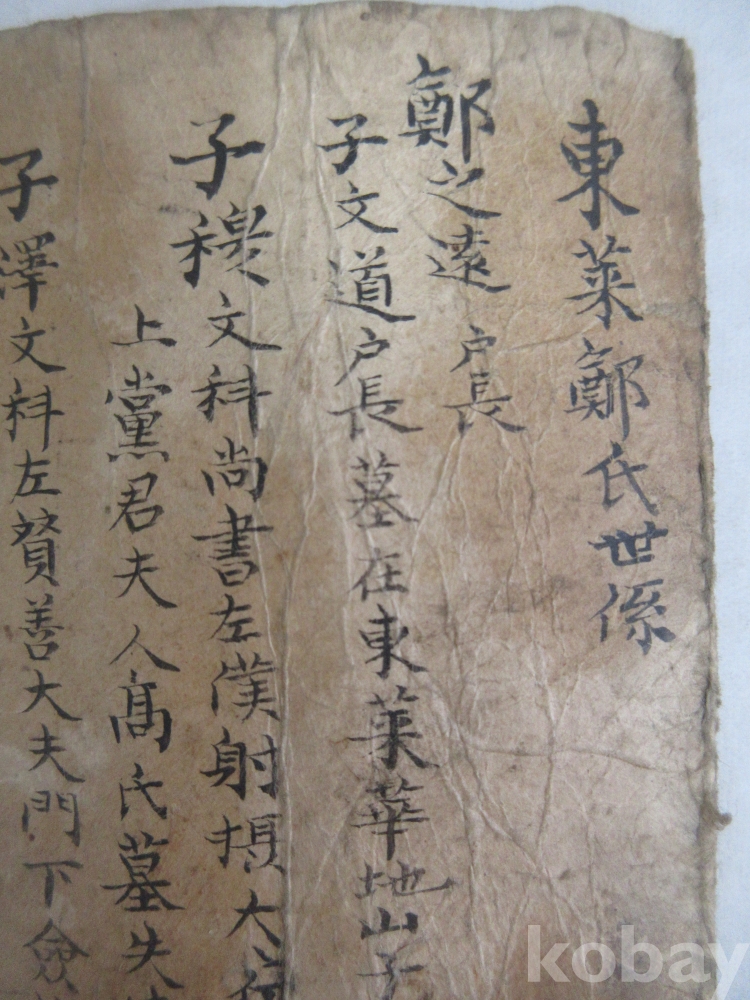 東萊鄭氏世係
鄭之遠 戶長
子文道戶長墓在東萊華地山子
子穆文科尚書左僕射攝大
上黨君夫人高氏墓失
子澤文科左贊善大夫門下僉
kobay